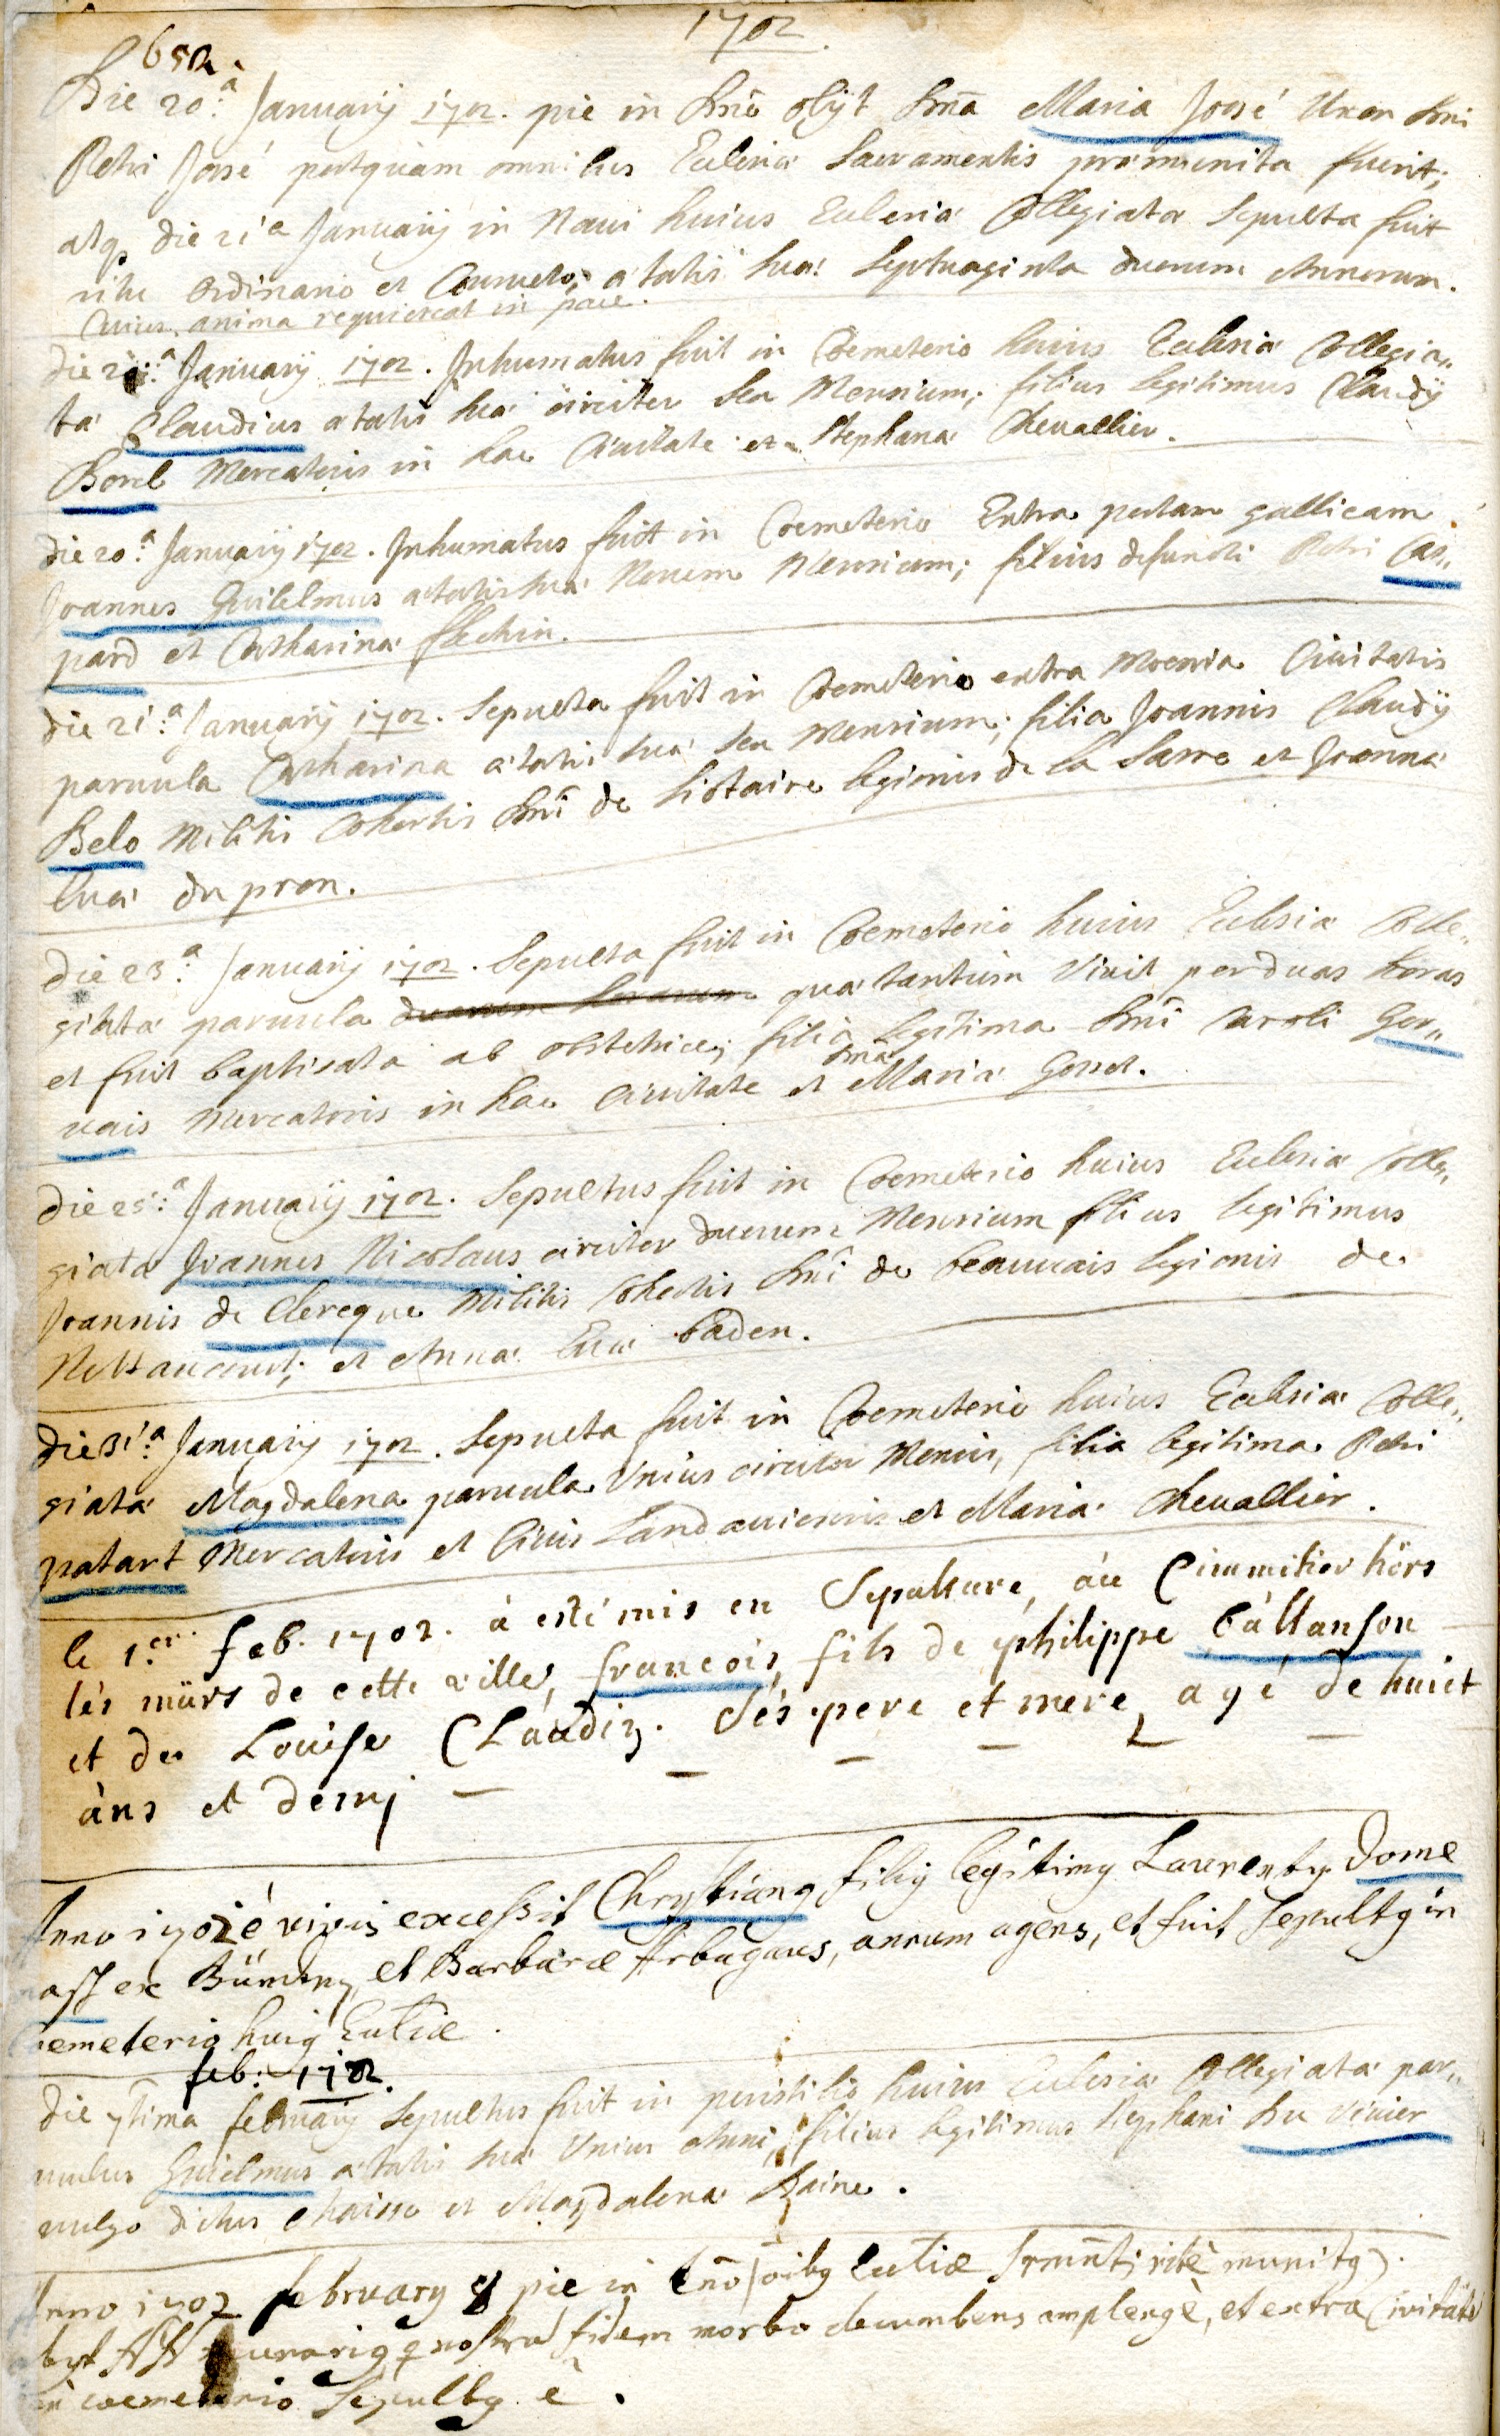 1702.
652.
Die 20.ª Januarij 1702. pie in Dnô obijt Dnã Maria José Uxor Dni
Petri José postquam omnibus Ecclesiæ Sacramentis præmunita fuerit;
atq, die 21ª Januarij in Naui huius Ecclesiæ Collegiatæ Sepulta fuit
ritu Ordinario et Consueto; ætatis suæ Septuaginta duorum Annorum.
Cuius anima requiescat in pace.
die 21.ª Januarij 1702. Inhumatus fuit in Coemeterio huius Ecclesiæ Collegia„
tæ Claudius ætatis suæ circiter Sex Mensium; filius legitimus Claudij
Borel Mercatoris in hac Ciuitate et Stephanæ Cheuallier.
die 20.ª Januarij 1702. Inhumatus fuit in Coemeterio Extra portam gallicam
Joannes Guilelmus ætatis suæ Nouem Mensium; filius defuncti Petri Cas„
pard et Catharinæ flechin.
die 21.ª Januarij 1702. Sepulta fuit in Coemeterio extra Moenia Ciuitatis
paruula Catharina ætatis suæ Sex Mensium; filia Joannis Claudij
Belo Militis Cohortis Dnî de liotaire legionis de la Sarre et Joannæ
luca du pron.
Die 23.ª Januarij 1702. Sepulta fuit in Coemeterio huius Ecclesiæ Colle„
giatæ paruula duarum horarum quæ tantum Vixit per duas horas
et fuit baptisata ab obstetrice; filia legitima Dnî Caroli Ger„
vais Mercatoris in hac Ciuitate et Dnæ Mariæ Gosset.
die 25.ª Januarij 1702. Sepultus fuit in Coemeterio huius Ecclesiæ Colle„
giatæ Joannes Nicolaus circiter duorum Mensium filius legitimus
Joannis de Clercque Militis Cohortis Dnî de beauuais legionis de
Nettancourt; et Annæ Euæ baden.
die 31.ª Januarij 1702. Sepulta fuit in Coemeterio huius Ecclesiæ Colle„
giatæ Magdalena paruula Unius circiter Mensis, filia legitima Petri
patart Mercatoris et Ciuis Landauiensis et Mariæ Cheuallier.
le 1.er feb. 1702. à esté mis en Sepulture, au Cimmitier hors
lés mürs de cette ville, francois, fils de philippe bàllanson
et de Louise Claudin. Sés pere et mere, agé de huict
àns et demj
Anno 1702 é vivis excessit Chrystiang filig legitimg Laurenty Dome
ass ex Büming et Barbaræ Arbogaus, annum agens, et fuit Sepultg in
Coemeterio huig Eccliæ.
feb: 1702.
Die 7tima februarij Sepultus fuit in peristilio huius Ecclesiæ Collegiatæ par„
uulus Guielmus ætatis suæ Unius Anni, filius legitimus Stephani Du Viuier
vulgo dictus chaisse et Magdalenæ Baine.
Anno 1702 february 8 pie in Dno (oibg Eccliæ Srmñtj ritè munitg)
obyt NN nostra fidem morbo decumbens amplexg è, et extra Civitatē
in coemeterio Sepultg è.